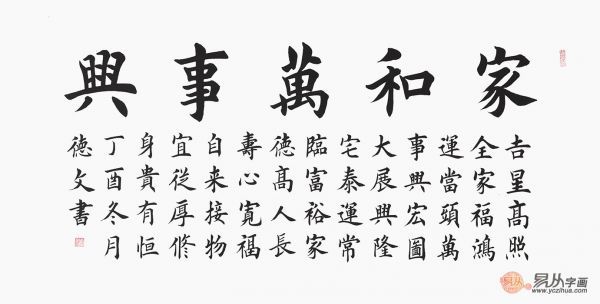 家和萬事興
吉星髙照
全家福鴻
運當頭萬
事興宏圖
大展興隆
宅泰運常
臨富裕家
德髙人長
壽心寬福
自来接物
宜從厚修
身貴有恒
丁酉冬月
德文書
易从字画
www.yczihua.com